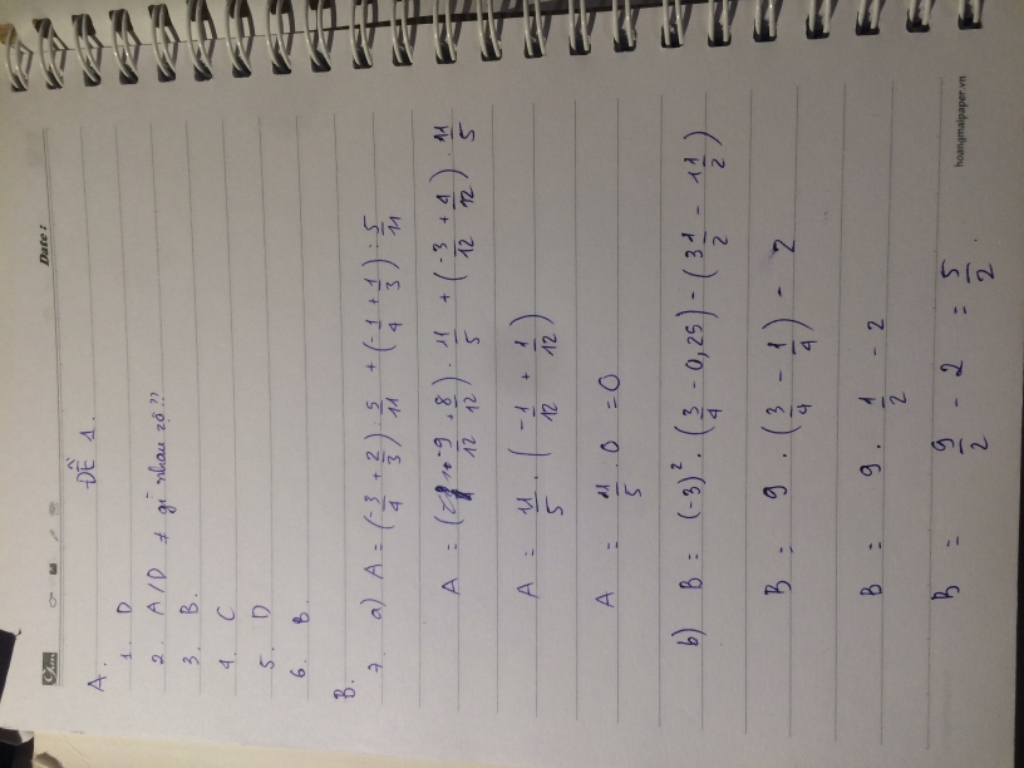 Date :
ĐỀ 1.
A.
1. D
2. A/D ≠ gì nhau zậ??
3. B.
4. C
5. D
6. B.
B.
7. a) A = (-3/4 + 2/3) : 5/11 + (-1/4 + 1/3) : 5/11
A = (-9/12 + 8/12) . 11/5 + (-3/12 + 4/12) . 11/5
A = 11/5 . (-1/12 + 1/12)
A = 11/5 . 0 = 0
b) B = (-3)² . (3/4 - 0,25) - (3 1/2 - 1 1/2)
B = 9 . (3/4 - 1/4) - 2
B = 9 . 1/2 - 2
B = 9/2 - 2 = 5/2
hoangmaipaper.vn